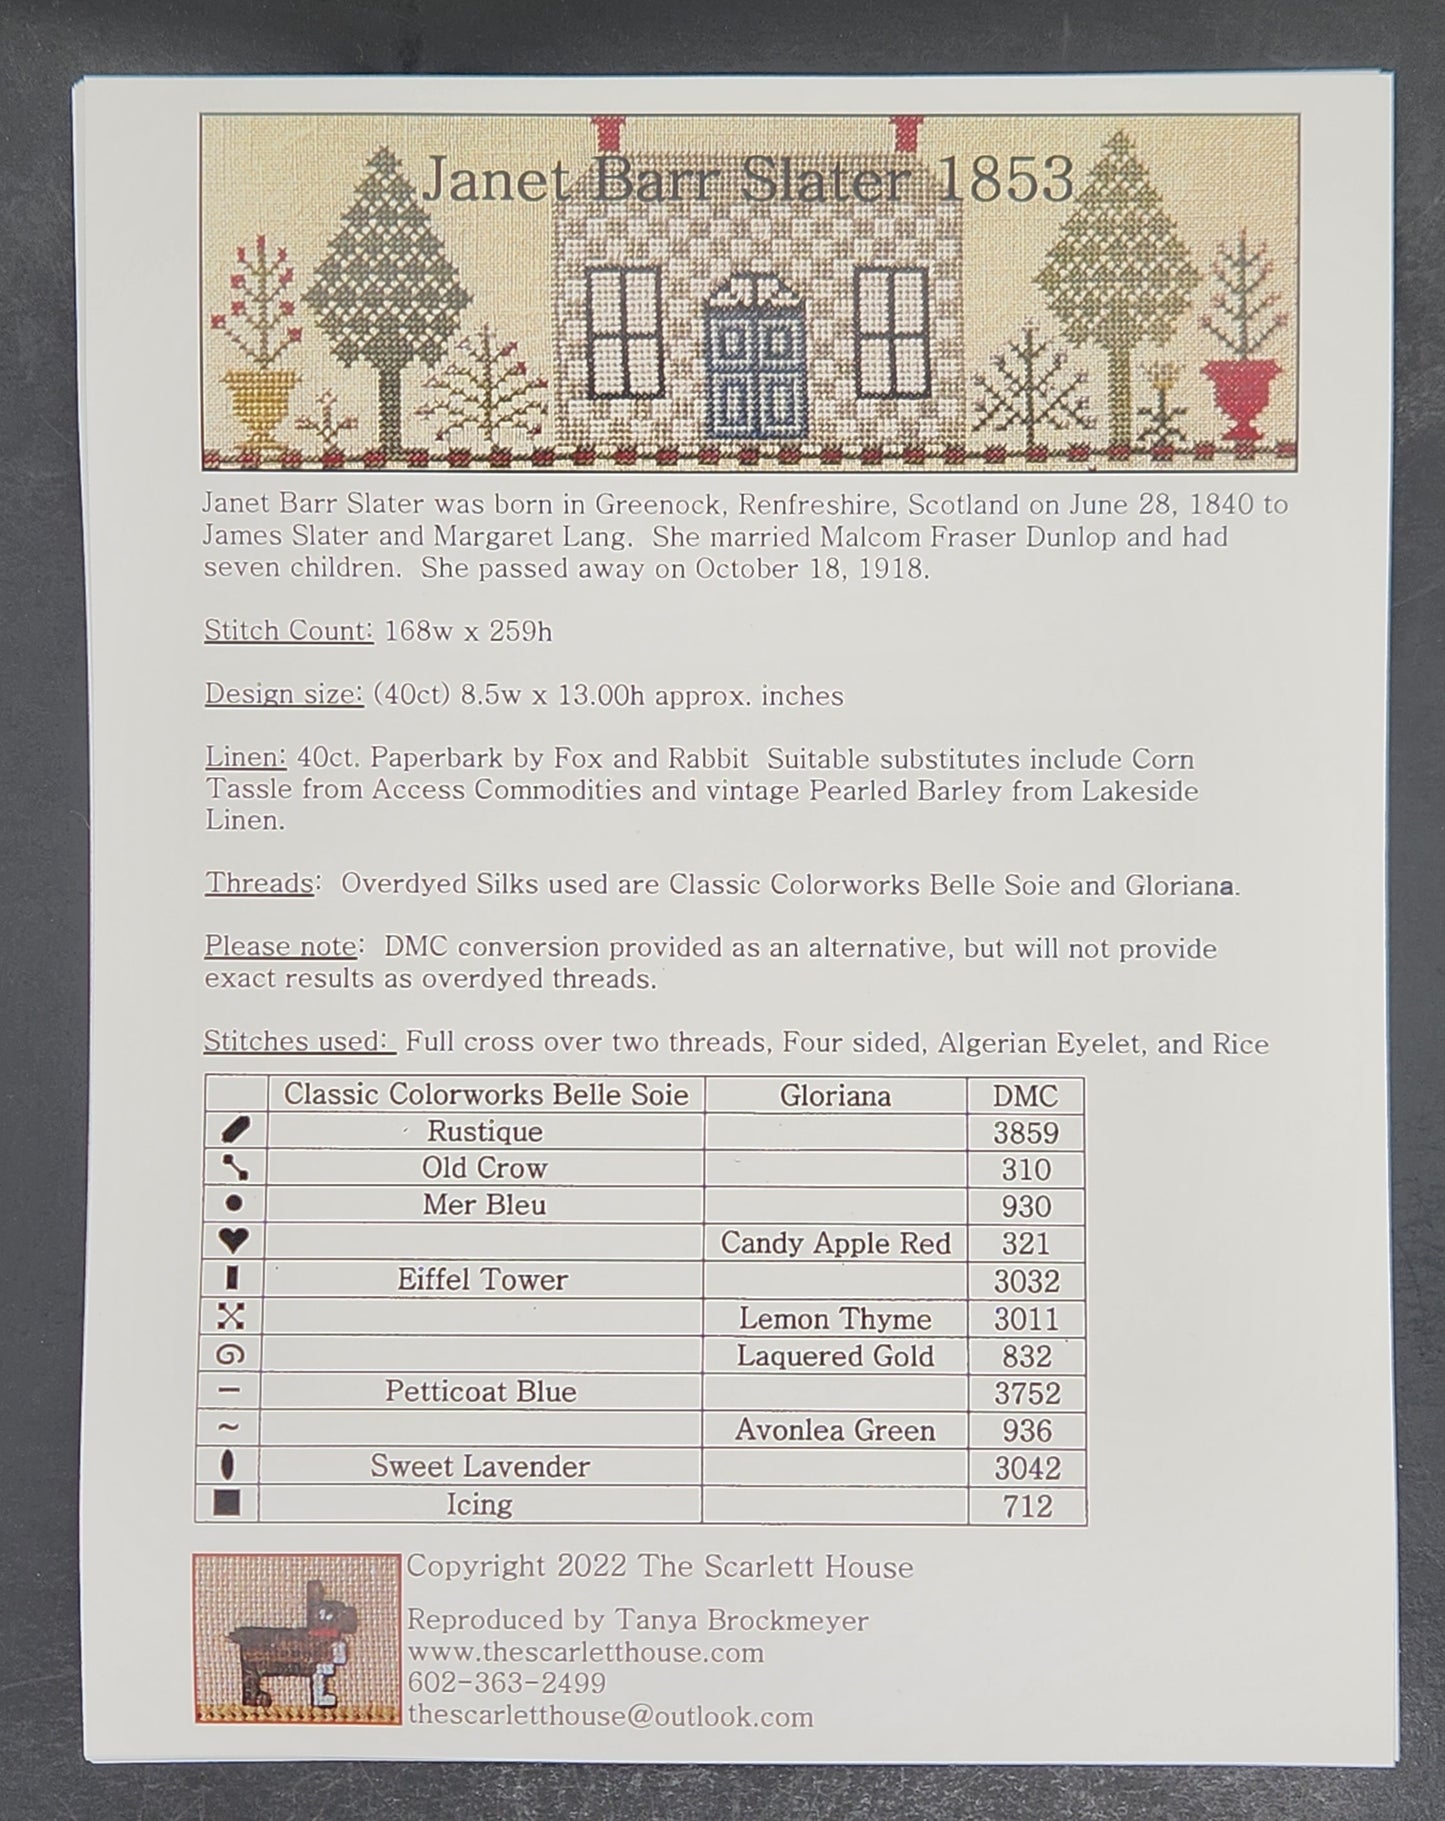 Janet Barr Slater 1853
Janet Barr Slater was born in Greenock, Renfreshire, Scotland on June 28, 1840 to
James Slater and Margaret Lang.  She married Malcom Fraser Dunlop and had
seven children.  She passed away on October 18, 1918.
Stitch Count: 168w x 259h
Design size: (40ct) 8.5w x 13.00h approx. inches
Linen: 40ct. Paperbark by Fox and Rabbit  Suitable substitutes include Corn
Tassle from Access Commodities and vintage Pearled Barley from Lakeside
Linen.
Threads:  Overdyed Silks used are Classic Colorworks Belle Soie and Gloriana.
Please note:  DMC conversion provided as an alternative, but will not provide
exact results as overdyed threads.
Stitches used:  Full cross over two threads, Four sided, Algerian Eyelet, and Rice
Classic Colorworks Belle Soie Gloriana DMC
Rustique 3859
Old Crow 310
Mer Bleu 930
Candy Apple Red 321
Eiffel Tower 3032
Lemon Thyme 3011
Laquered Gold 832
Petticoat Blue 3752
Avonlea Green 936
Sweet Lavender 3042
Icing 712
Copyright 2022 The Scarlett House
Reproduced by Tanya Brockmeyer
www.thescarletthouse.com
602-363-2499
thescarletthouse@outlook.com